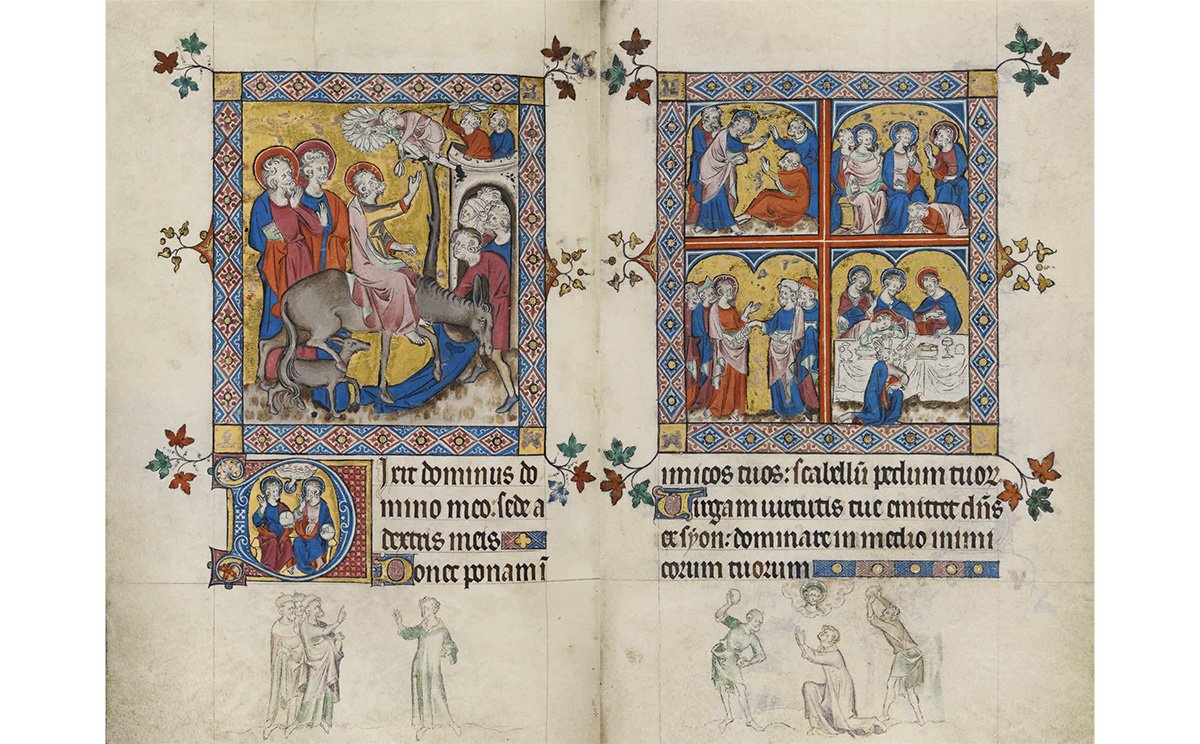 Dixit dominus do
mino meo: sede a
dextris meis
Donec ponam ī
imicos tuos: scabellū pedum tuor
Virgam virtutis tue emittet dn̄s
ex syon: dominare in medio inimi
corum tuorum